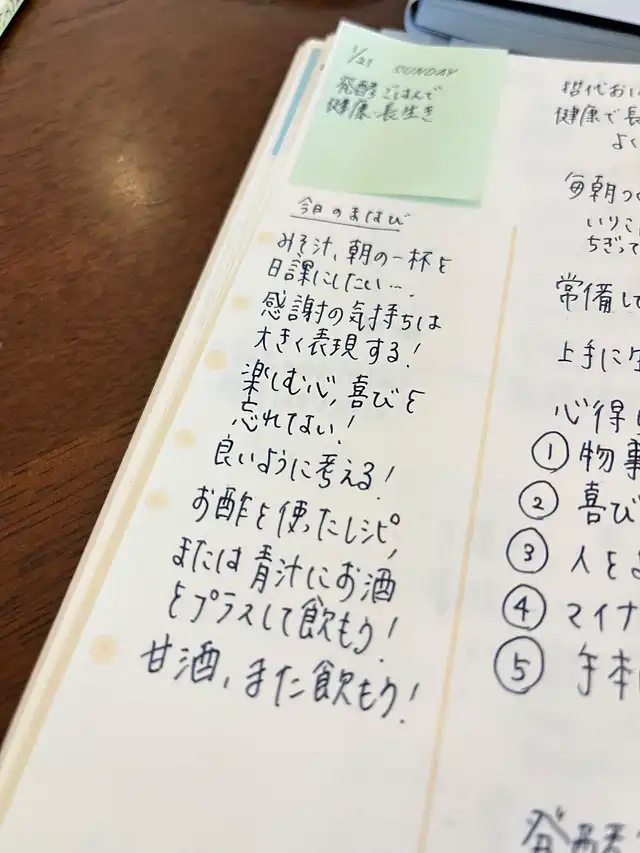 1/21 SUNDAY
発酵ごはんで
健康・長生き
今日のまなび
みそ汁、朝の一杯を
日課にしたい….
感謝の気持ちは
大きく表現する!
楽しむ心、喜びを
忘れてない!
良いように考える!
お酢を使ったレシピ,
または青汁にお酒
をプラスして飲もう!
甘酒、また飲もう!
健康で長
よく
毎朝つ
いりこ
ちぎって
常備して
上手に
心得
① 物事
② 喜び
③ 人を
④ マイナ
⑤ 手本